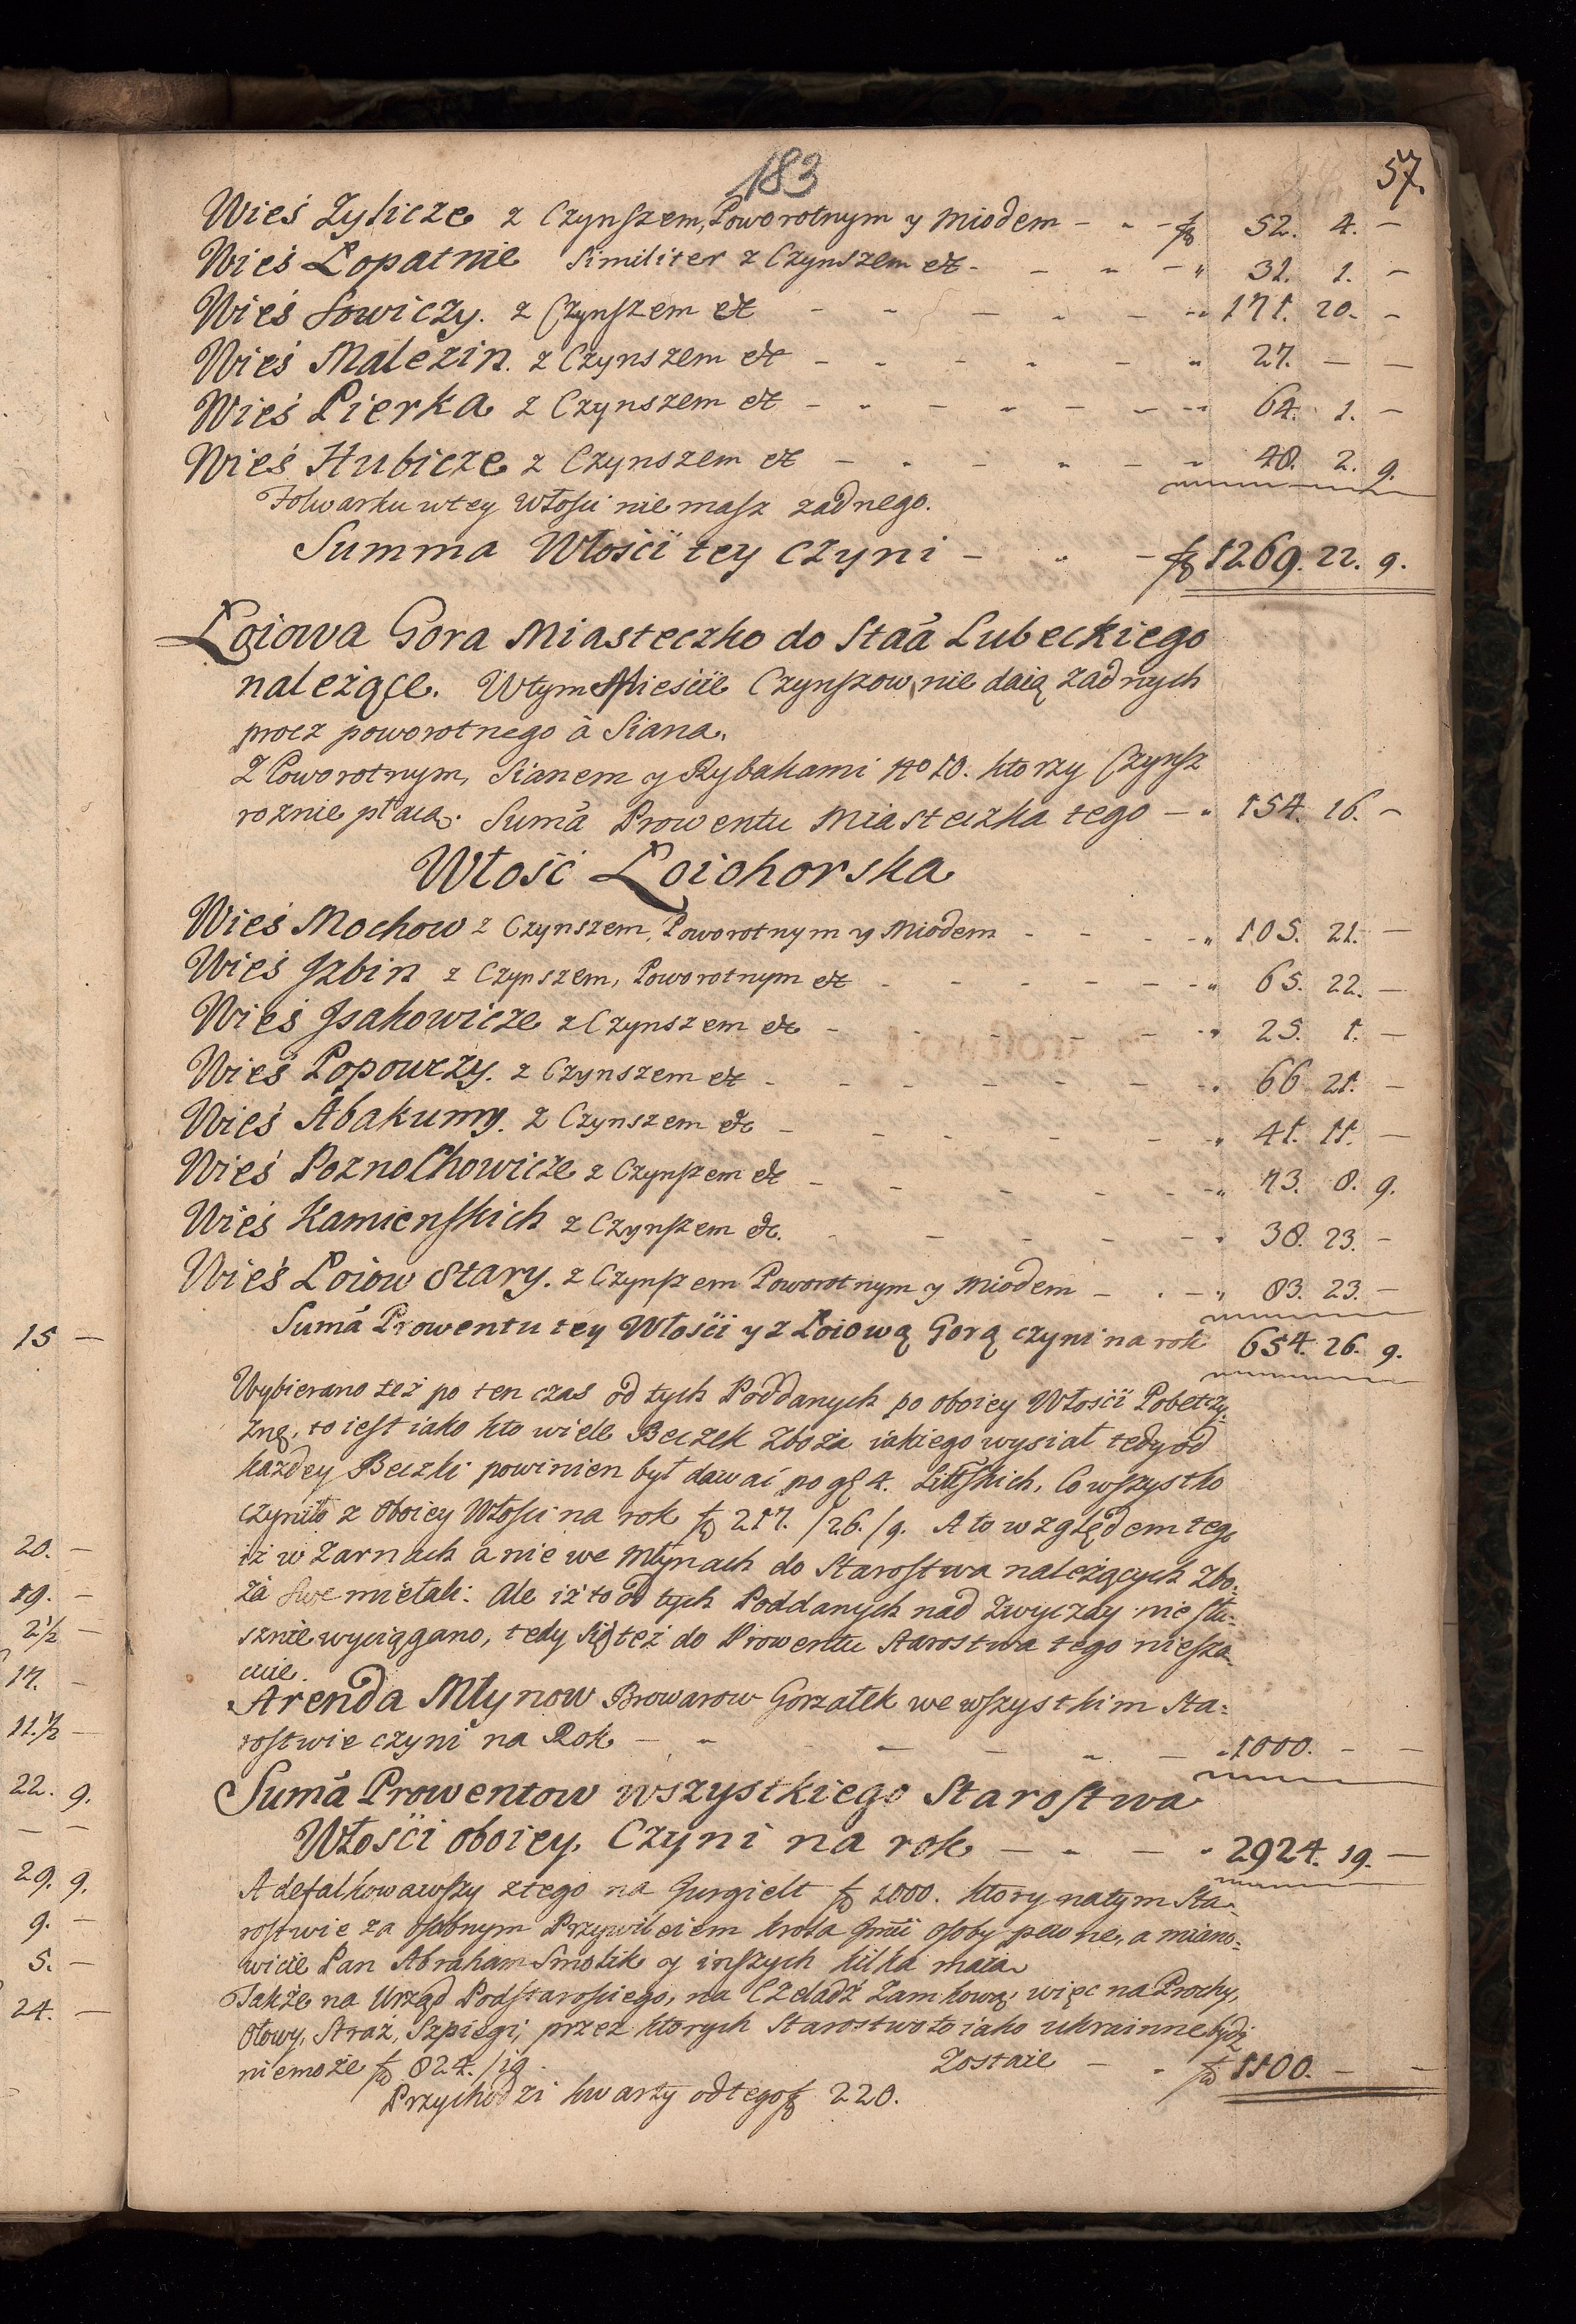 183
57.
Wieś Zylicze z Czynszem, Poworotnym y Miodem - - - fl 52. 4. -
Wieś Łopatnie Similiter z Czynszem etc - - - - " 31. 1. -
Wieś Sowiczy. z Czynszem etc - - - - - " 171. 20. -
Wieś Mależin. z Czynszem etc - - - - " 27. - -
Wieś Pierka z Czynszem etc - - - - - - " 64. 1. -
Wieś Hubicze z Czynszem etc - - - - - - 48. 2. 9.
Folwarku w tey Włości nie masz żadnego.
Summa Włości tey czyni - - - fl 1269. 22. 9.
Łoiowa Gora Miasteczko do Staã Lubeckiego
należące. W tym Mieście Czynszow nie daią żadnych
procz poworotnego à Siana.
Z Poworotnym, Sianem y Rybakami No 10. ktorzy Czynsz
roznie płacą. Sumã Prowentu Miasteczka tego - " 154. 16. -
Włość Łoiohorska
Wieś Mochow z Czynszem, Poworotnym y Miodem - - - - " 105. 21. -
Wieś Jzbin z Czynszem, Poworotnym etc - - - - - - " 65. 22. -
Wieś Jsakowicze z Czynszem etc - - - - - " 25. 1. -
Wieś Popowczy. z Czynszem etc - - - - - - - " 66 21. -
Wieś Abakumy. z Czynszem etc - - - - - " 41. 11. -
Wieś PoznoChowicze z Czynszem etc - - - - - " 73. 8. 9.
Wieś Kamienskich z Czynszem etc. - - - - - " 38. 23. -
Wieś Łoiow Stary. z Czynszem Poworotnym y Miodem - - - " 83. 23. -
Sumã Prowentu tey Włości y z Łoiową Gorą czyni na rok 654. 26. 9.
Wybierano też po ten czas od tych Poddanych po oboiey Włości Pobeczy-
zną, to iest iako kto wiele Beczek Zboża iakiego wysiał tedy od
każdey Beczki powinien był dawać po gr 4. Littskich, Co wszystko
czyniło z oboiey Włości na rok fl 217. /26. /9. A to względem tego
iż w Żarnach a nie we Młynach do Starostwa należących Zbo-
ża swe mełali: Ale iż to od tych Poddanych nad Zwyczay niesłu-
sznie wyciągano, tedy się też do Prowentu Starostwa tego niesza-
cuie.
Arenda Młynow Browarow Gorzałek we wszystkim Sta-
rostwie czyni na Rok - - - - - - - " 1000. - -
Sumã Prowentow wszystkiego Starostwa
Włości oboiey Czyni na rok - - - - " 2924. 19. -
A defalkowawszy z tego na Jurgielt fl 1000. ktory na tym Sta-
rostwie za osobnym Przywileiem Krola Jmci osoby pewne, a miano-
wicie Pan Abraham Smolik y inszych kilka maią
Także na Urząd Podstarosciego, na CZeladź Zamkową, więc na Prochy,
Ołowy, Straż, Szpiegi, przez ktorych Starostwo to iako ukrainne bydź
niemoże fl 824. /19. Zostaie - - fl 1100. - -
Przychodzi kwarty od tego fl 220.
15 -
20. -
19. -
2½ -
17. -
11.½ -
22. 9.
- -
29. 9.
9. -
5. -
24. -